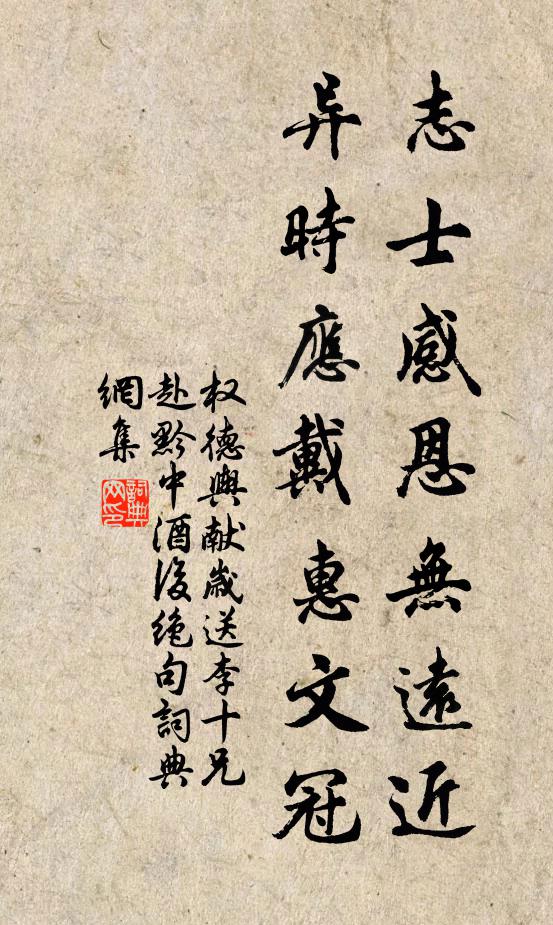 志士感恩無遠近
异時應戴惠文冠
权德輿献歲送李十兄
赴黔中酒後绝句詞典
網集
詞典網印